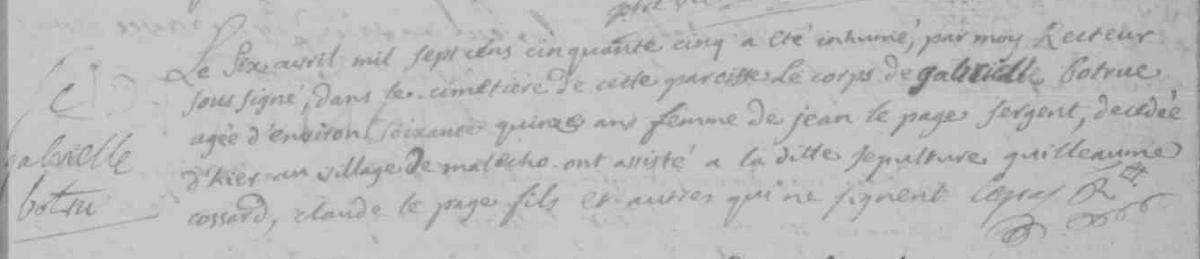 Le six avril mil sept cens cinquante cinq a eté inhumé, par moy Recteur
C
sous signé, dans le cimetiere de cette paroisse Le corps de gabrielle botrue
agée d'environ soixante quinze ans femme de jean le page sergent, decedée
gabrielle
d'hier au village de malecho ont assisté a la ditte sepulture guilleaume
botru
cossard, claude le page fils et autres qui ne signent